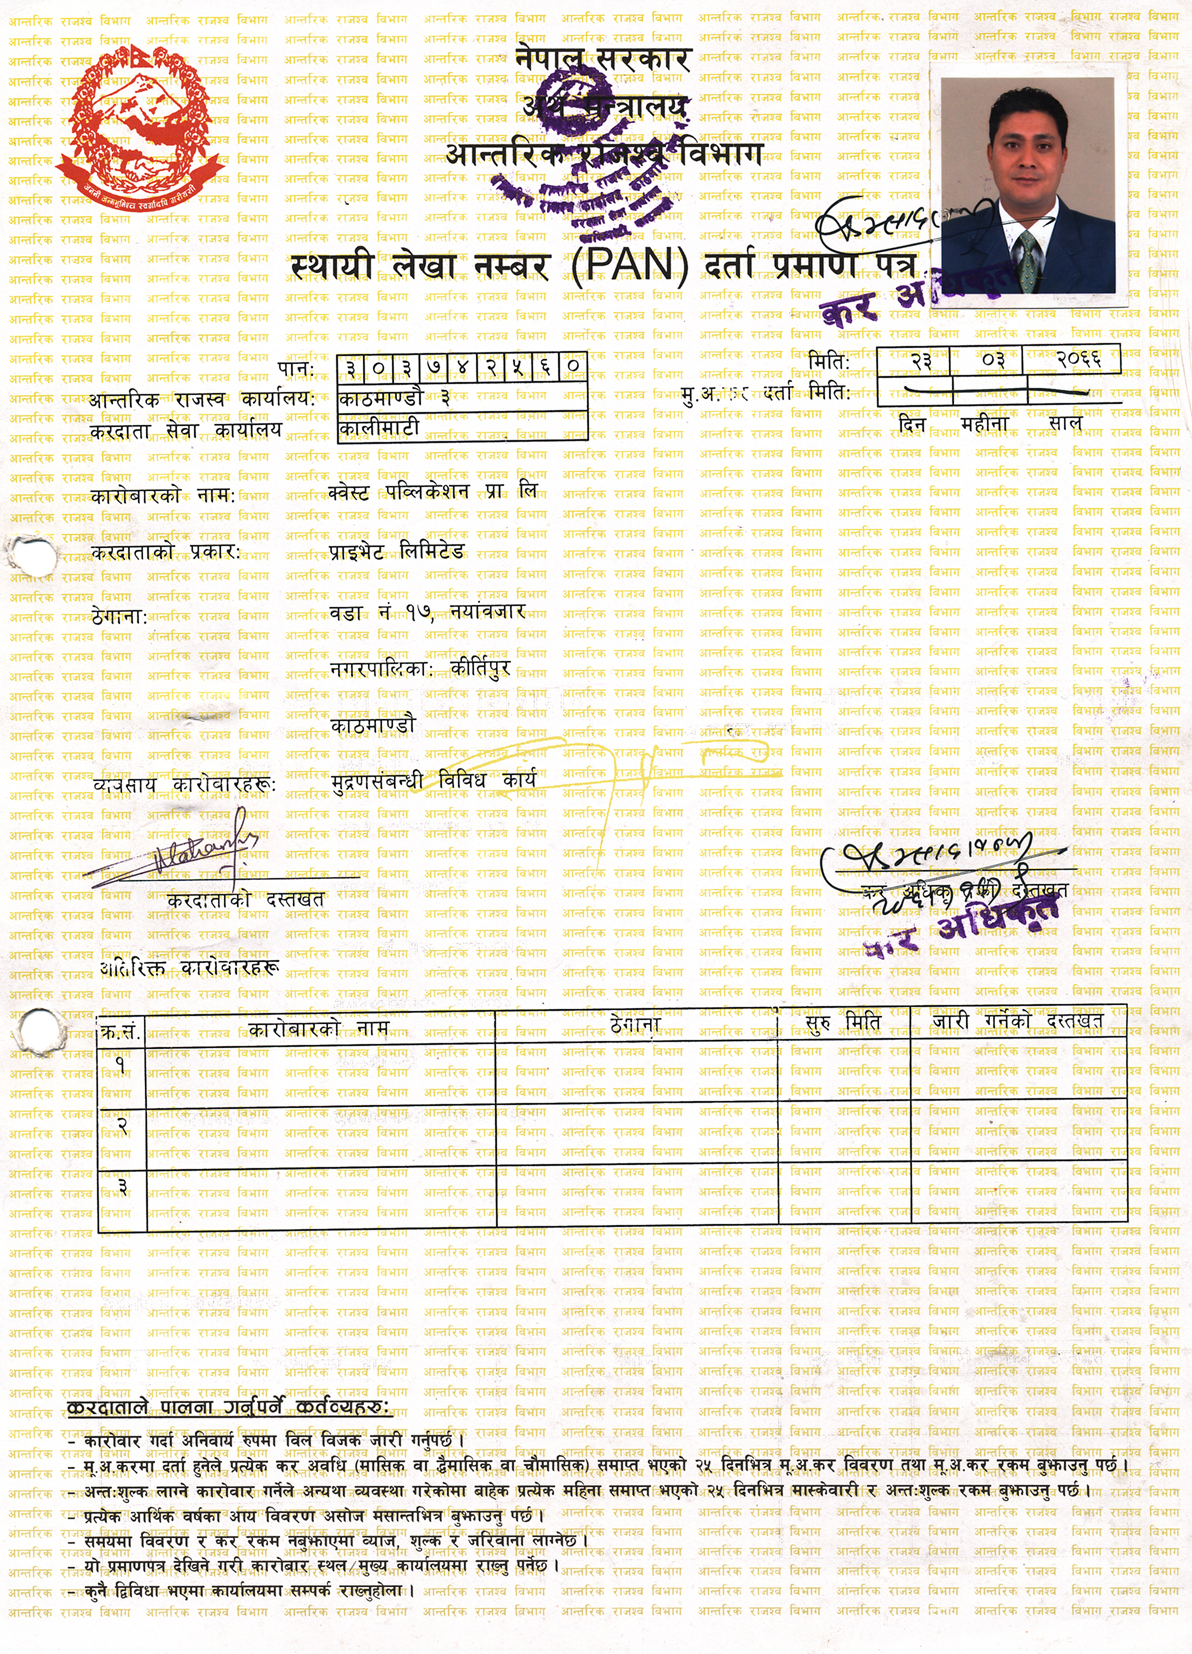 नेपाल सरकार
अर्थ मन्त्रालय
आन्तरिक राजश्व विभाग
जननी जन्मभूमिश्च स्वर्गादपि गरीयसी
स्थायी लेखा नम्बर (PAN) दर्ता प्रमाण पत्र
कर अधिकृत
पान: ३०३७४२५६०
मिति: २३ ०३ २०६६
आन्तरिक राजस्व कार्यालय: काठमाण्डौ ३
मु.अ.कर दर्ता मिति:
करदाता सेवा कार्यालय कालीमाटी
दिन महीना साल
कारोबारको नाम: क्वेस्ट पव्लिकेशन प्रा लि
करदाताको प्रकार: प्राइभेट लिमिटेड
ठेगाना: वडा नं १७, नयांवजार
नगरपालिका: कीर्तिपुर
काठमाण्डौ
व्यवसाय कारोवारहरू: मुद्रणसंबन्धी विविध कार्य
करदाताको दस्तखत
कर अधिकृतको दस्तखत
कर अधिकृत
अतिरिक्त कारोवारहरू
क्र.सं. कारोबारको नाम ठेगाना सुरु मिति जारी गर्नेको दस्तखत
१
२
३
करदाताले पालना गर्नुपर्ने कर्तव्यहरु:
- कारोवार गर्दा अनिवार्य रुपमा विल विजक जारी गर्नुपर्छ ।
- मू.अ.करमा दर्ता हुनेले प्रत्येक कर अवधि (मासिक वा द्वैमासिक वा चौमासिक) समाप्त भएको २५ दिनभित्र मू.अ.कर विवरण तथा मू.अ.कर रकम बुझाउनु पर्छ ।
- अन्त:शुल्क लाग्ने कारोवार गर्नेले अन्यथा व्यवस्था गरेकोमा बाहेक प्रत्येक महिना समाप्त भएको २५ दिनभित्र मास्केवारी र अन्त:शुल्क रकम बुझाउनु पर्छ ।
- प्रत्येक आर्थिक वर्षका आय विवरण असोज मसान्तभित्र बुझाउनु पर्छ ।
- समयमा विवरण र कर रकम नबुझाएमा व्याज, शुल्क र जरिवाना लाग्नेछ ।
- यो प्रमाणपत्र देखिने गरी कारोबार स्थल/मुख्य कार्यालयमा राख्नु पर्नेछ ।
- कुनै द्विविधा भएमा कार्यालयमा सम्पर्क राख्नुहोला ।